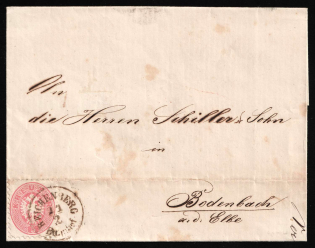 An
die Herren Schiller & Sohn
in
Bodenbach
a.d. Elbe
REICHENBERG